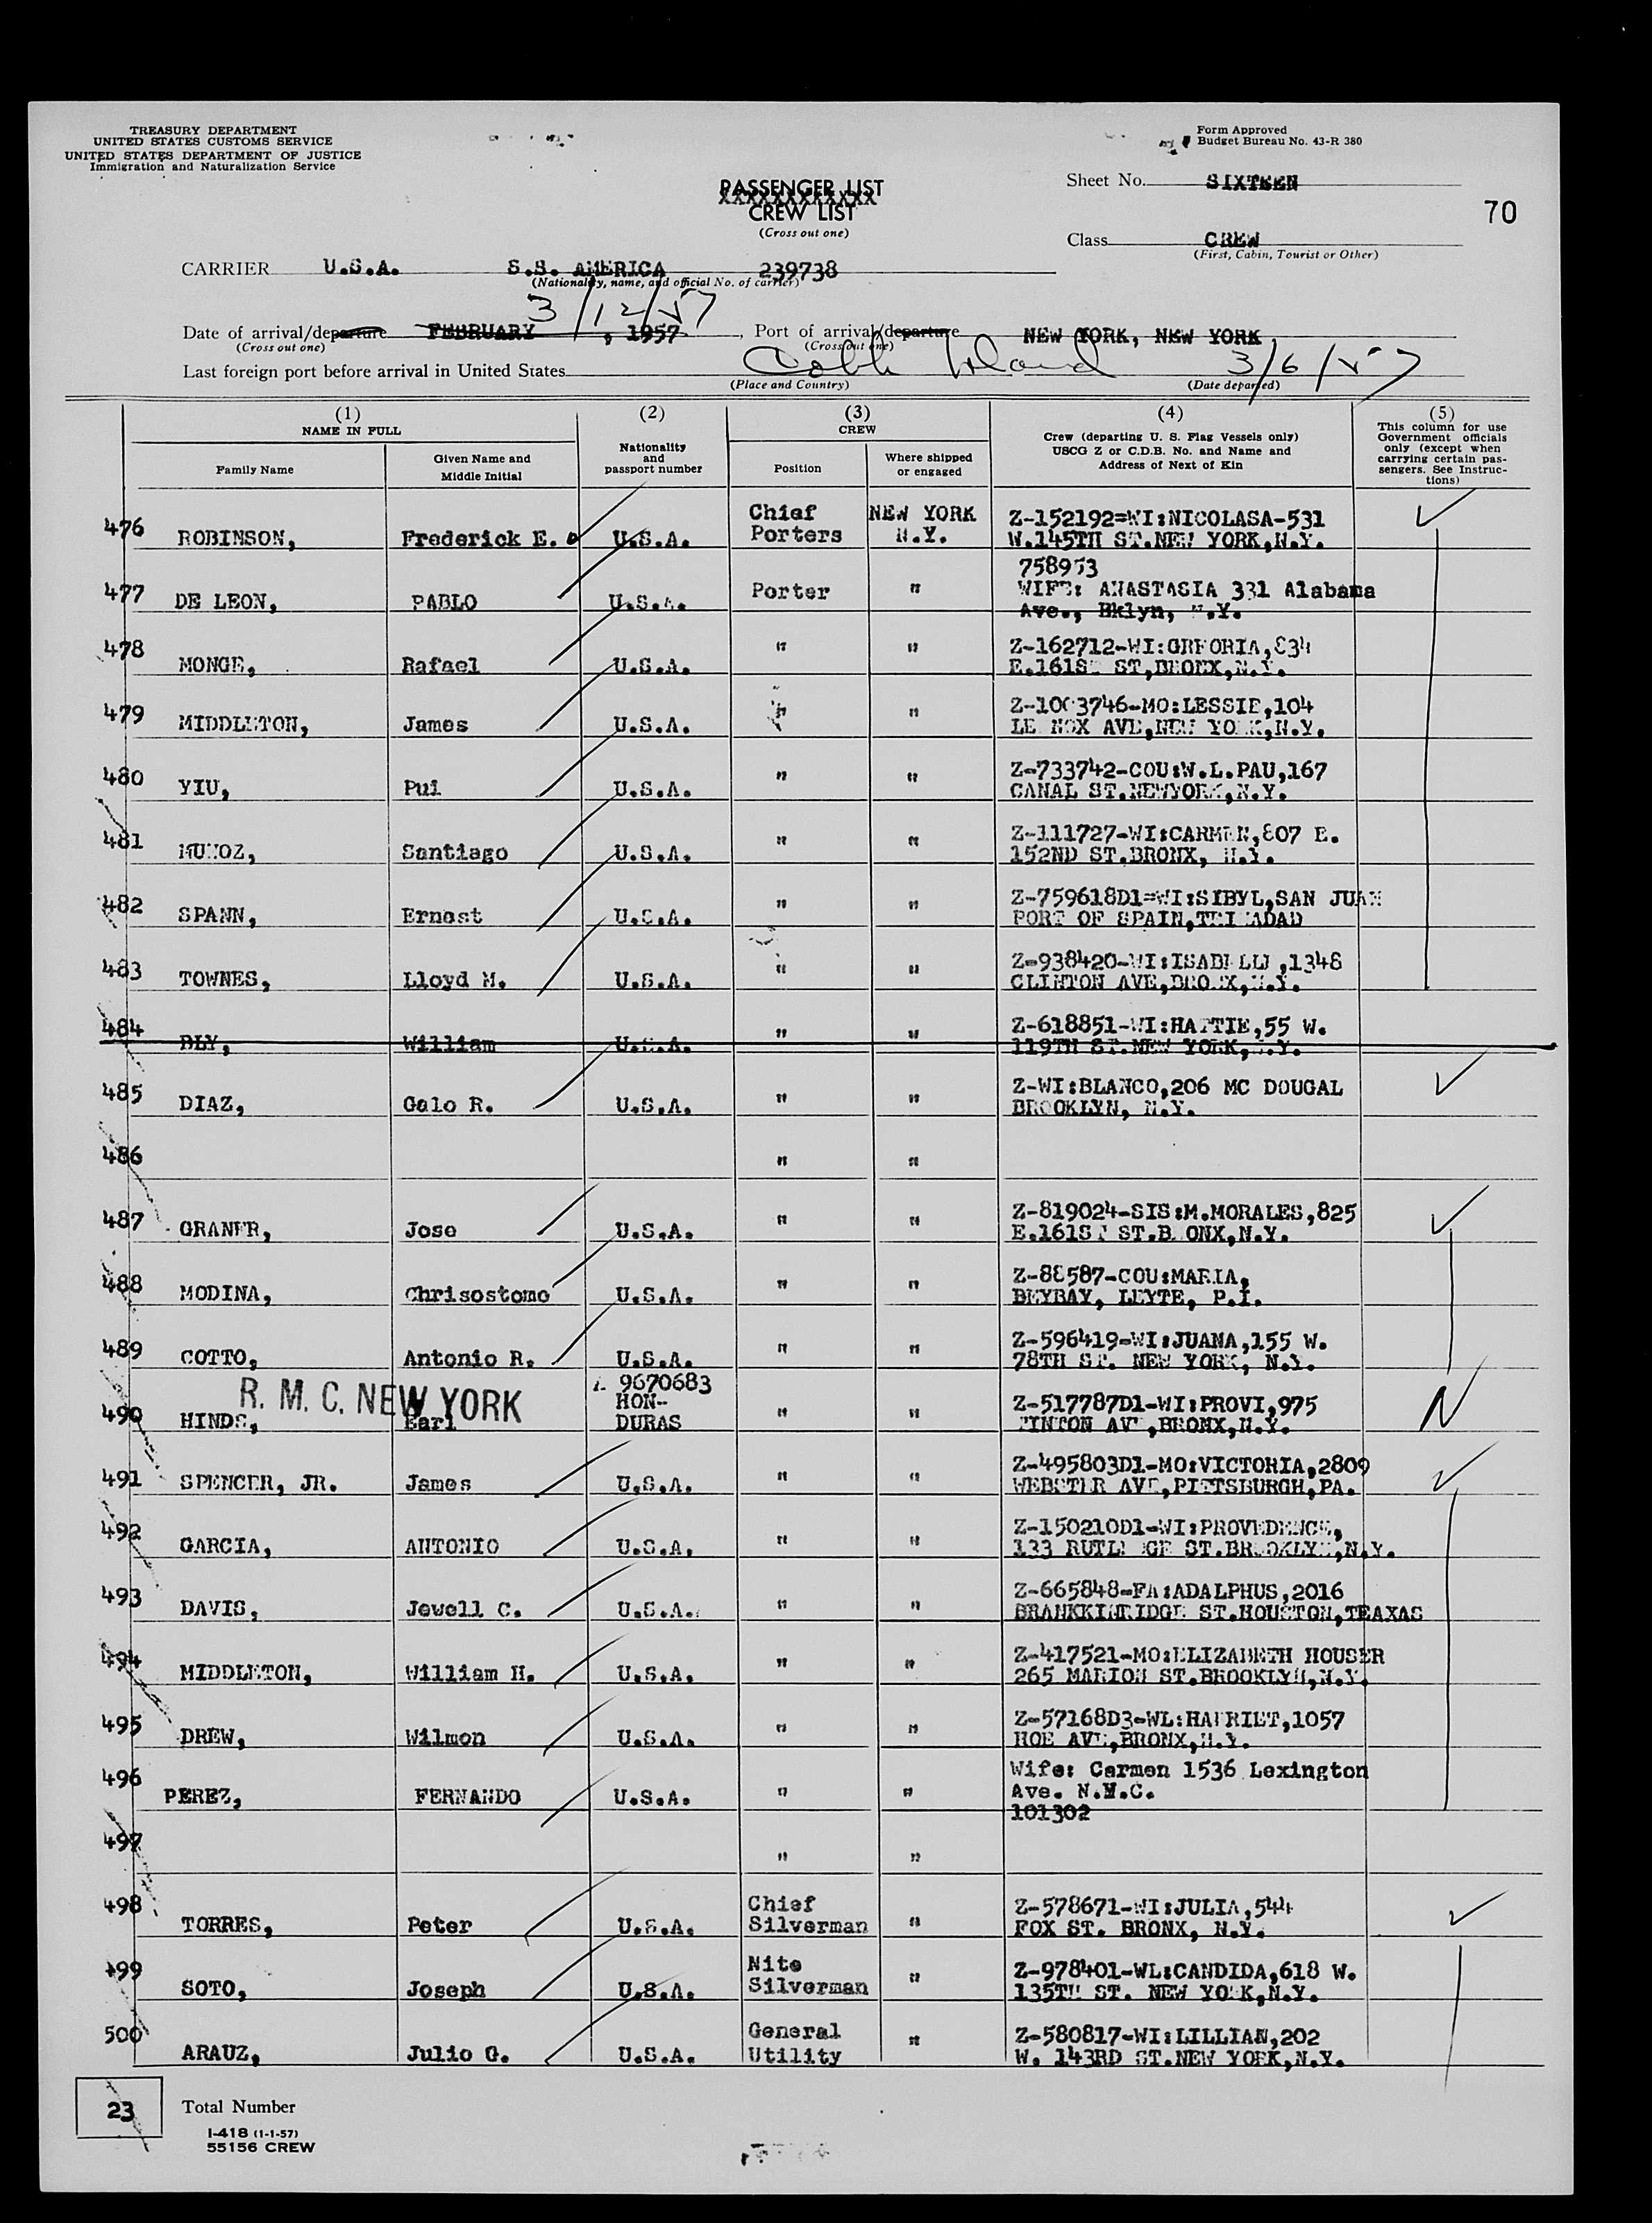 TREASURY DEPARTMENT
UNITED STATES CUSTOMS SERVICE
UNITED STATES DEPARTMENT OF JUSTICE
Immigration and Naturalization Service
Form Approved
Budget Bureau No. 43-R 380
PASSENGER LIST
XXXXXXXXXXXXX
CREW LIST
(Cross out one)
Sheet No. SIXTEEN
70
Class CREW
(First, Cabin, Tourist or Other)
CARRIER U.S.A. S.S. AMERICA 239738
(Nationality, name, and official No. of carrier)
3/12/57
Date of arrival/departure FEBRUARY , 1957, Port of arrival/departure NEW YORK, NEW YORK
(Cross out one) (Cross out one)
Last foreign port before arrival in United States Cobh Ireland 3/6/57
(Place and Country) (Date departed)
(1) NAME IN FULL
Family Name
Given Name and Middle Initial
(2)
Nationality and passport number
(3) CREW
Position
Where shipped or engaged
(4)
Crew (departing U. S. Flag Vessels only)
USCG Z or C.D.B. No. and Name and
Address of Next of Kin
(5)
This column for use
Government officials
only (except when
carrying certain pas-
sengers. See Instruc-
tions)
476 ROBINSON, Frederick E. U.S.A. Chief Porters NEW YORK N.Y. Z-152192=WI:NICOLASA-531
W.145TH ST.NEW YORK,N.Y.
477 DE LEON, PABLO U.S.A. Porter " 758953
WIFE: ANASTASIA 331 Alabama
Ave., Bklyn, N.Y.
478 MONGE, Rafael U.S.A. " " Z-162712-WI:GREORIA,834
E.161ST ST,BRONX,N.Y.
479 MIDDLETON, James U.S.A. " " Z-1003746-MO:LESSIE,104
LE NOX AVE,NEW YORK,N.Y.
480 YIU, Pui U.S.A. " " Z-733742-COU:W.L.PAU,167
CANAL ST.NEWYORK,N.Y.
481 MUNOZ, Santiago U.S.A. " " Z-111727-WI:CARMEN,807 E.
152ND ST.BRONX, N.Y.
482 SPANN, Ernest U.S.A. " " Z-759618D1=WI:SIBYL,SAN JUAN
PORT OF SPAIN,TRINADAD
483 TOWNES, Lloyd M. U.S.A. " " Z-938420-WI:ISABELLE,1348
CLINTON AVE,BRONX,N.Y.
484 BLY, William U.S.A. " " Z-618851-WI:HATTIE,55 W.
119TH ST.NEW YORK,N.Y.
485 DIAZ, Galo R. U.S.A. " " Z-WI:BLANCO,206 MC DOUGAL
BROOKLYN, N.Y.
486 " "
487 GRANER, Jose U.S.A. " " Z-819024-SIS:M.MORALES,825
E.161ST ST.BRONX,N.Y.
488 MODINA, Chrisostomo U.S.A. " " Z-88587-COU:MARIA,
BEYBAY, LEYTE, P.I.
489 COTTO, Antonio R. U.S.A. " " Z-596419=WI:JUANA,155 W.
78TH ST. NEW YORK, N.Y.
R. M. C. NEW YORK
490 HINDS, Earl 9670683 HON-DURAS " " Z-517787D1-WI:PROVI,975
TINTON AVE,BRONX,N.Y.
N
491 SPENCER, JR. James U.S.A. " " Z-495803D1-MO:VICTORIA,2809
WEBSTER AVE,PITTSBURGH,PA.
492 GARCIA, ANTONIO U.S.A. " " Z-150210D1-WI:PROVEDENCE,
133 RUTLEDGE ST.BROOKLYN,N.Y.
493 DAVIS, Jewell C. U.S.A. " " Z-665848-FA:ADALPHUS,2016
ST.HOUSTON,TEAXAS
494 MIDDLETON, William H. U.S.A. " " Z-417521-MO:ELIZABETH HOUSER
265 MARION ST.BROOKLYN,N.Y.
495 DREW, Wilmon U.S.A. " " Z-57168D3-WL:HARRIET,1057
HOE AVE,BRONX,N.Y.
496 PEREZ, FERNANDO U.S.A. " " Wife: Carmen 1536 Lexington
Ave. N.Y.C.
101302
497 " "
498 TORRES, Peter U.S.A. Chief Silverman " Z-578671-WI:JULIA,544
FOX ST. BRONX, N.Y.
499 SOTO, Joseph U.S.A. Nite Silverman " Z-978401-WL:CANDIDA,618 W.
135TH ST. NEW YORK,N.Y.
500 ARAUZ, Julio G. U.S.A. General Utility " Z-580817-WI:LILLIAN,202
W. 143RD ST.NEW YORK,N.Y.
23 Total Number
I-418 (1-1-57)
55156 CREW